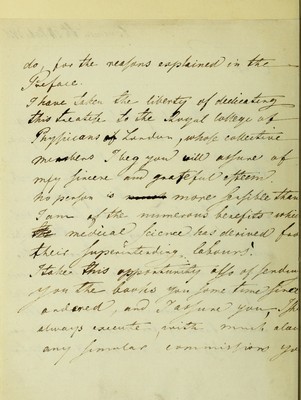 do, for the reasons explained in the
Preface.
I have taken the liberty of dedicating
this treatise to the Royal College of
Physicians of London, whose collective
members I beg you will assure of
my sincere and grateful esteem.
No person is more sensible than
I am of the numerous benefits which
medical science has derived from
their superintending labours.
I take this opportunity also of sending
you the books you some time since
ordered, and I assure you, I
always execute with much
any similar commissions you